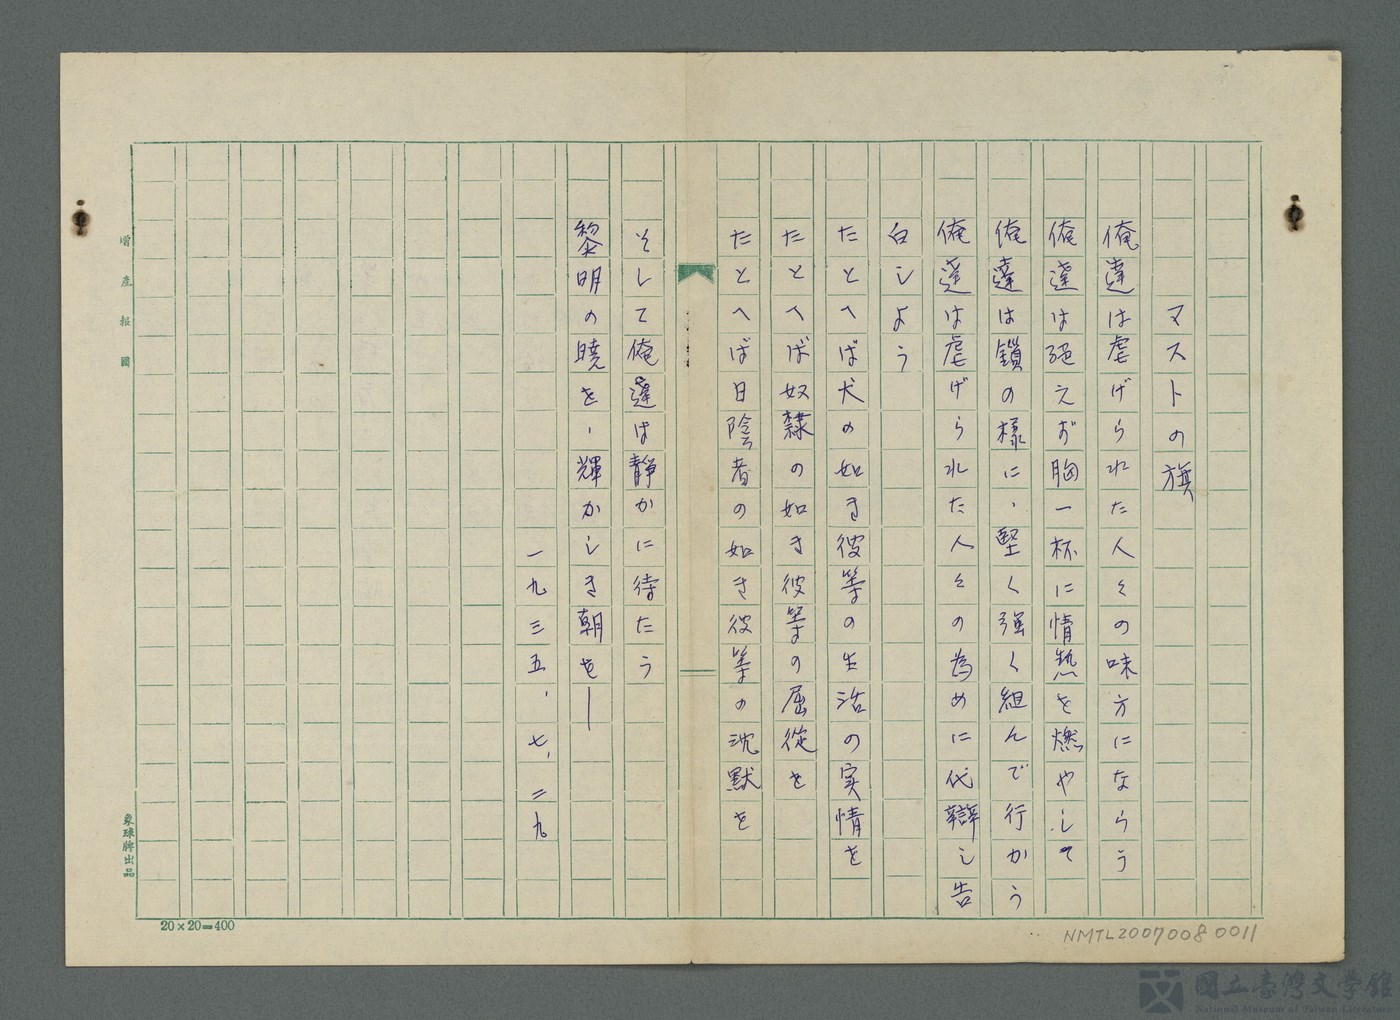 マストの旗
俺達は虐げられた人々の味方にならう
俺達は絕えず胸一杯に情熱を燃やして
俺達は鎖の様に、堅く強く組んで行かう
俺達は虐げられた人々の為めに代辯し告
白しよう
たとへば犬の如き彼等の生活の実情を
たとへば奴隸の如き彼等の屈從を
たとへば日陰者の如き彼等の沈默を
そして俺達は静かに待たう
黎明の曉を、輝かしき朝を—
一九三五、七、二九
增產報國
象球牌出品
20×20=400
NMTL20070080011
國立臺灣文學館
National Museum of Taiwan Literature